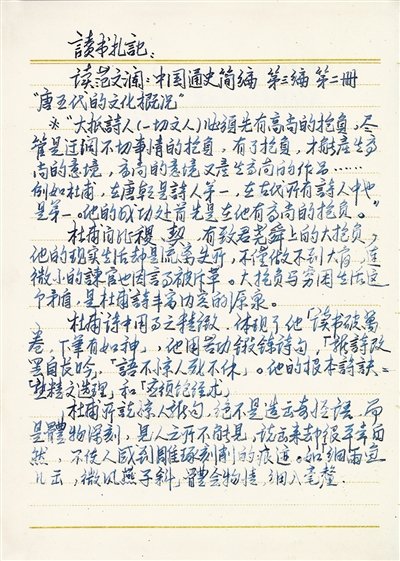 讀书札記:
读范文瀾:中国通史简编 第三编 第二册
"唐五代的文化概况"
※"大抵詩人(一切文人)必須先有高尚的抱負,尽
管是迂闊不切事情的抱負,有了抱負,才能產生高
尚的意境,高尚的意境又產生高尚的作品……
例如杜甫,在唐朝是詩人第一,在古代所有詩人中也
是第一。他的成功处首先是在他有高尚的抱負。"
杜甫自比稷、契,有致君堯舜上的大抱負,
他的現实生活却是流离失所,不僅做不到大官,連
微小的諫官也因言事被斥革。大抱負与穷困生活这
个矛盾,是杜甫詩丰富内容的源泉。
杜甫詩中用力之精微,体現了他「读书破萬
卷,下筆有如神」,他用苦功鍛鍊詩句,「新詩改
罢自長吟」,「語不惊人死不休」。他的根本詩訣=
「熟精文选理」和「
杜甫所謂惊人新句,絕不是造出奇怪語,而
是體物深刻,見人之所不能見,说出来却很平常自
然,不使人感到雕琢刻削的痕迹。如「細雨魚
儿出,微风燕子斜」體会物情,細入毫釐.